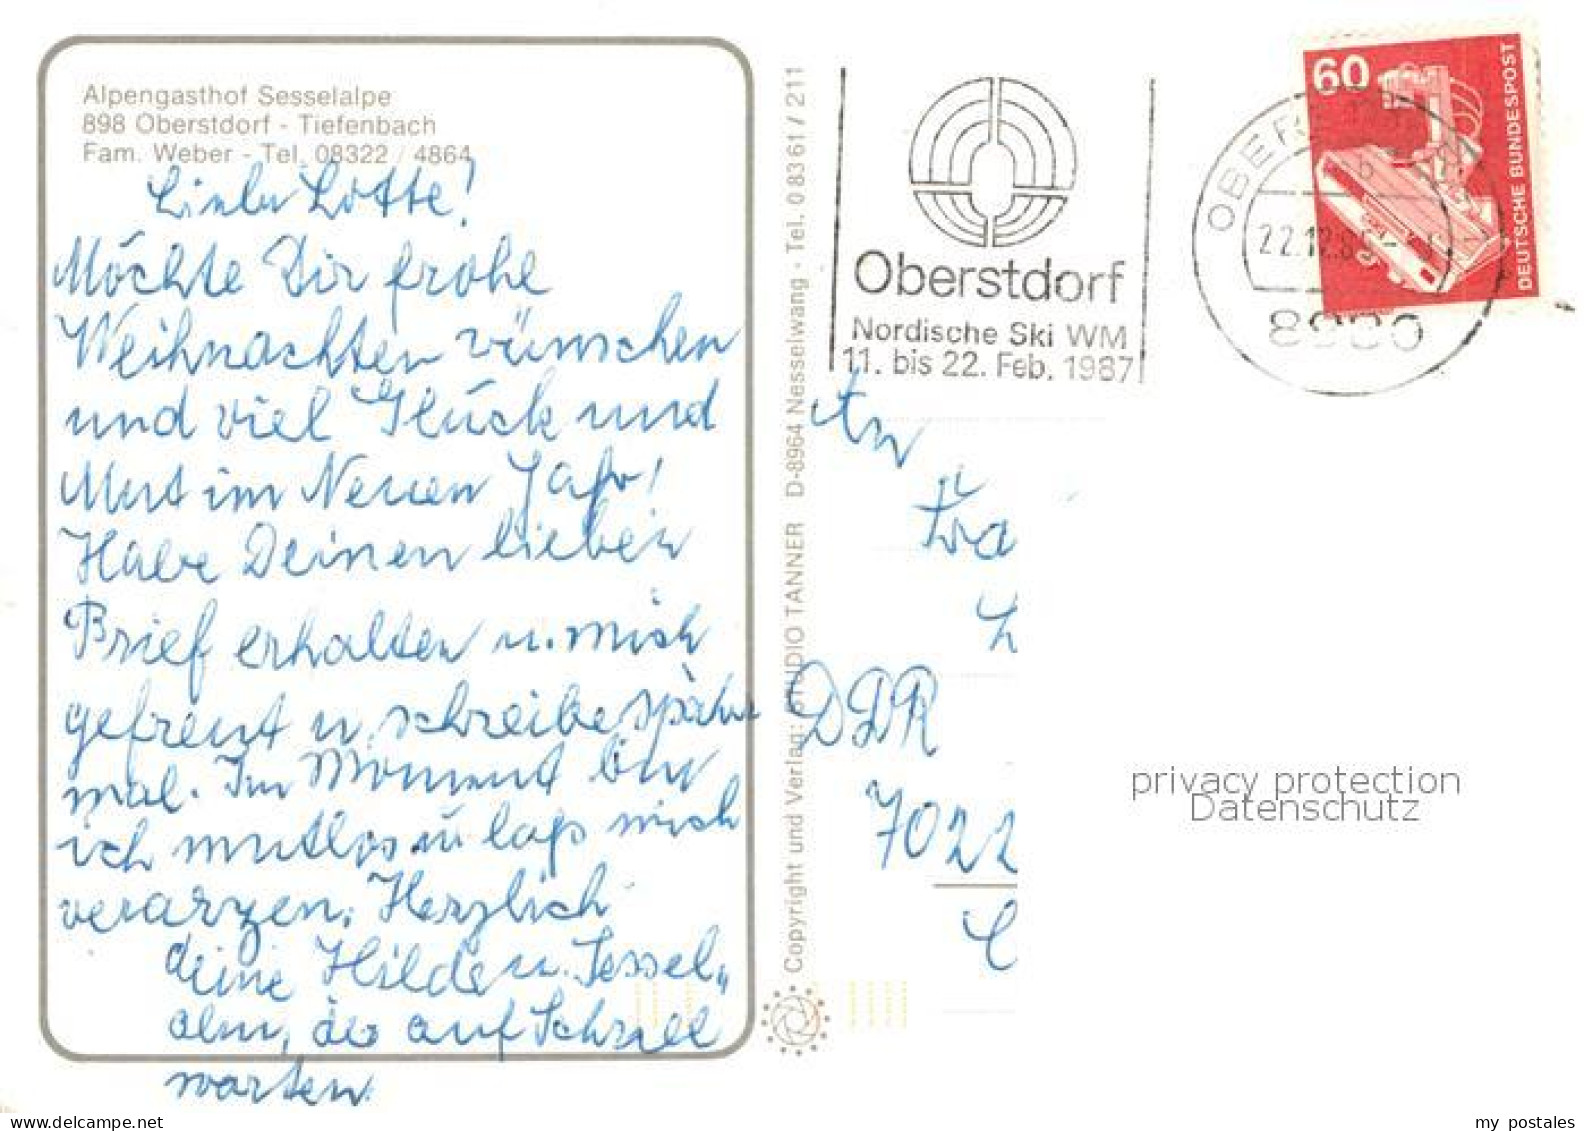 Alpengasthof Sesselalpe
898 Oberstdorf - Tiefenbach
Fam. Weber - Tel. 08322 / 4864
Liebe Lotte!
Möchte Dir frohe
Weihnachten wünschen
und viel Glück und
Mut im Neuen Jahr!
Habe Deinen lieben
Brief erhalten u. mich
gefreut u. schreibe später
mal. Im Moment bin
ich mutlos u. laß mich
verarzen. Herzlich
deine Hilde u. Sessel„
alm, die auf Schnee
warten.
Copyright und Verlag: STUDIO TANNER D-8964 Nesselwang - Tel. 08361 / 211
Oberstdorf
Nordische Ski WM
11. bis 22. Feb. 1987
60
DEUTSCHE BUNDESPOST
b
8980
An
DDR
7022
privacy protection
Datenschutz
www.delcampe.net
my postales